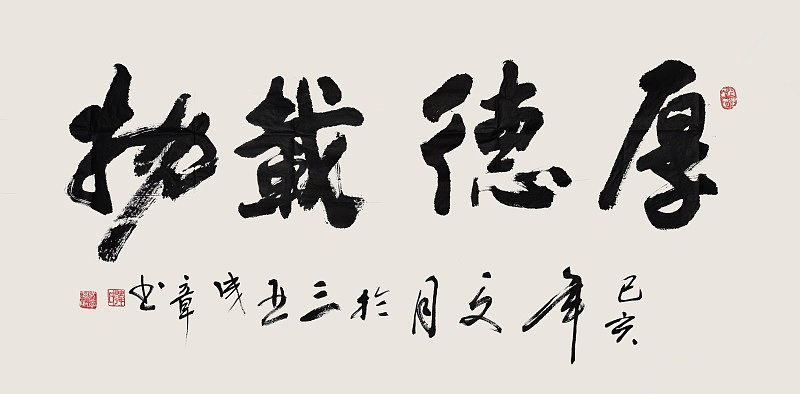 厚德載物
己亥年文月於三丑成章书